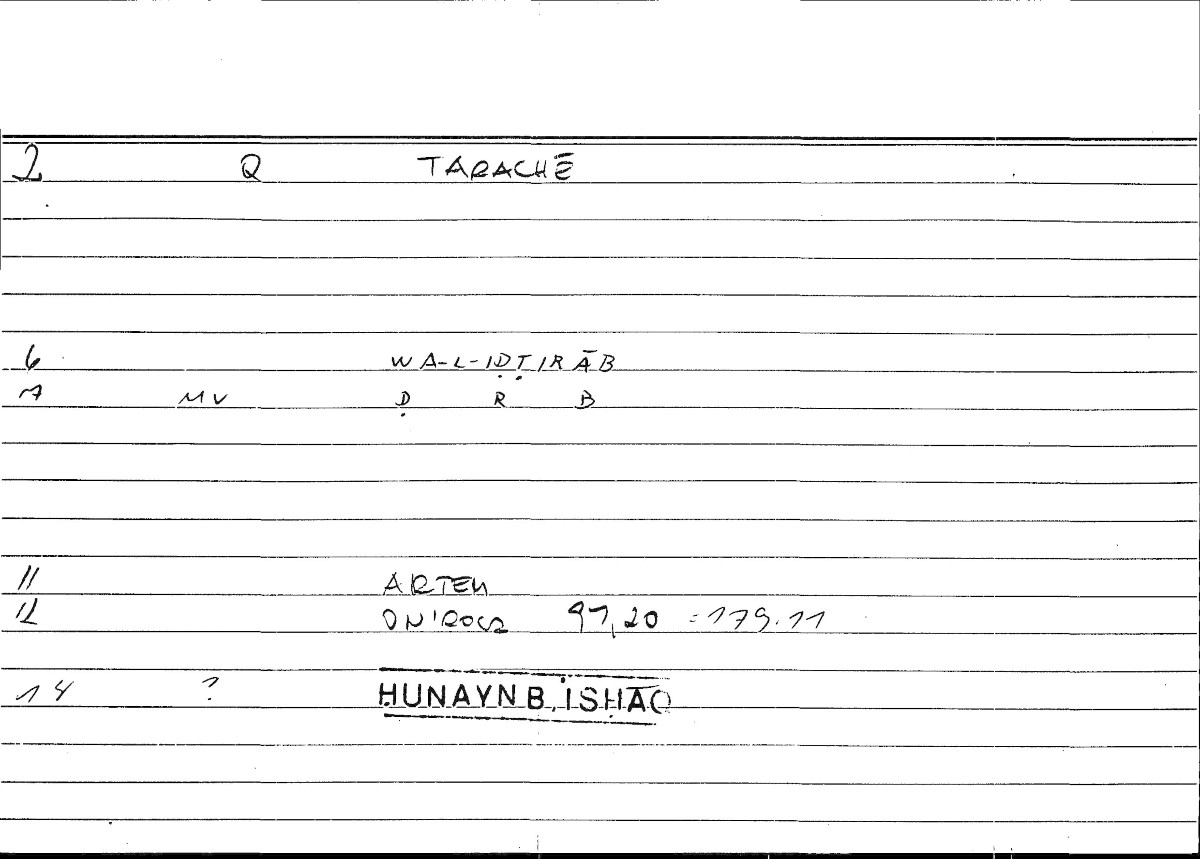 2 Q TARACHĒ
6 WA-L-IḌṬIRĀB
7 MV Ḍ R B
11 ARTEM
12 ONIROCR 91,20 = 179.11
14 ? ḤUNAYN B. ISḤĀQ